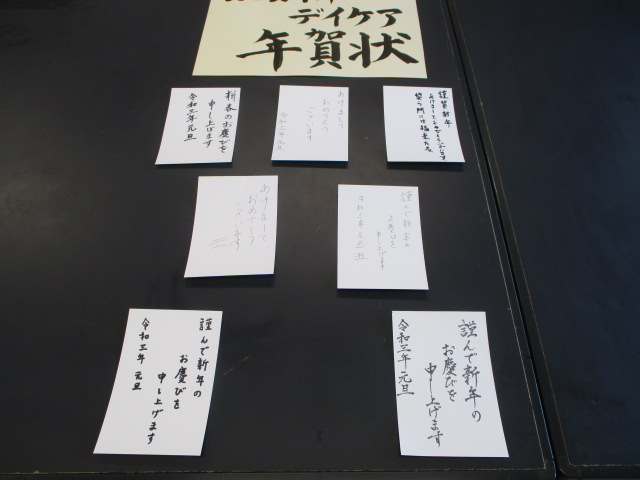 デイケア
年賀状
新春のお慶びを
申し上げます
令和三年元旦
あけまして
おめでとう
ございます
令和三年元旦
謹賀新年
笑う門には福来たる
あけまして
おめでとう
ございます
謹んで新年の
お慶びを
申し上げます
令和三年元旦
謹んで新年の
お慶びを
申し上げます
令和三年 元旦
謹んで新年の
お慶びを
申し上げます
令和三年元旦